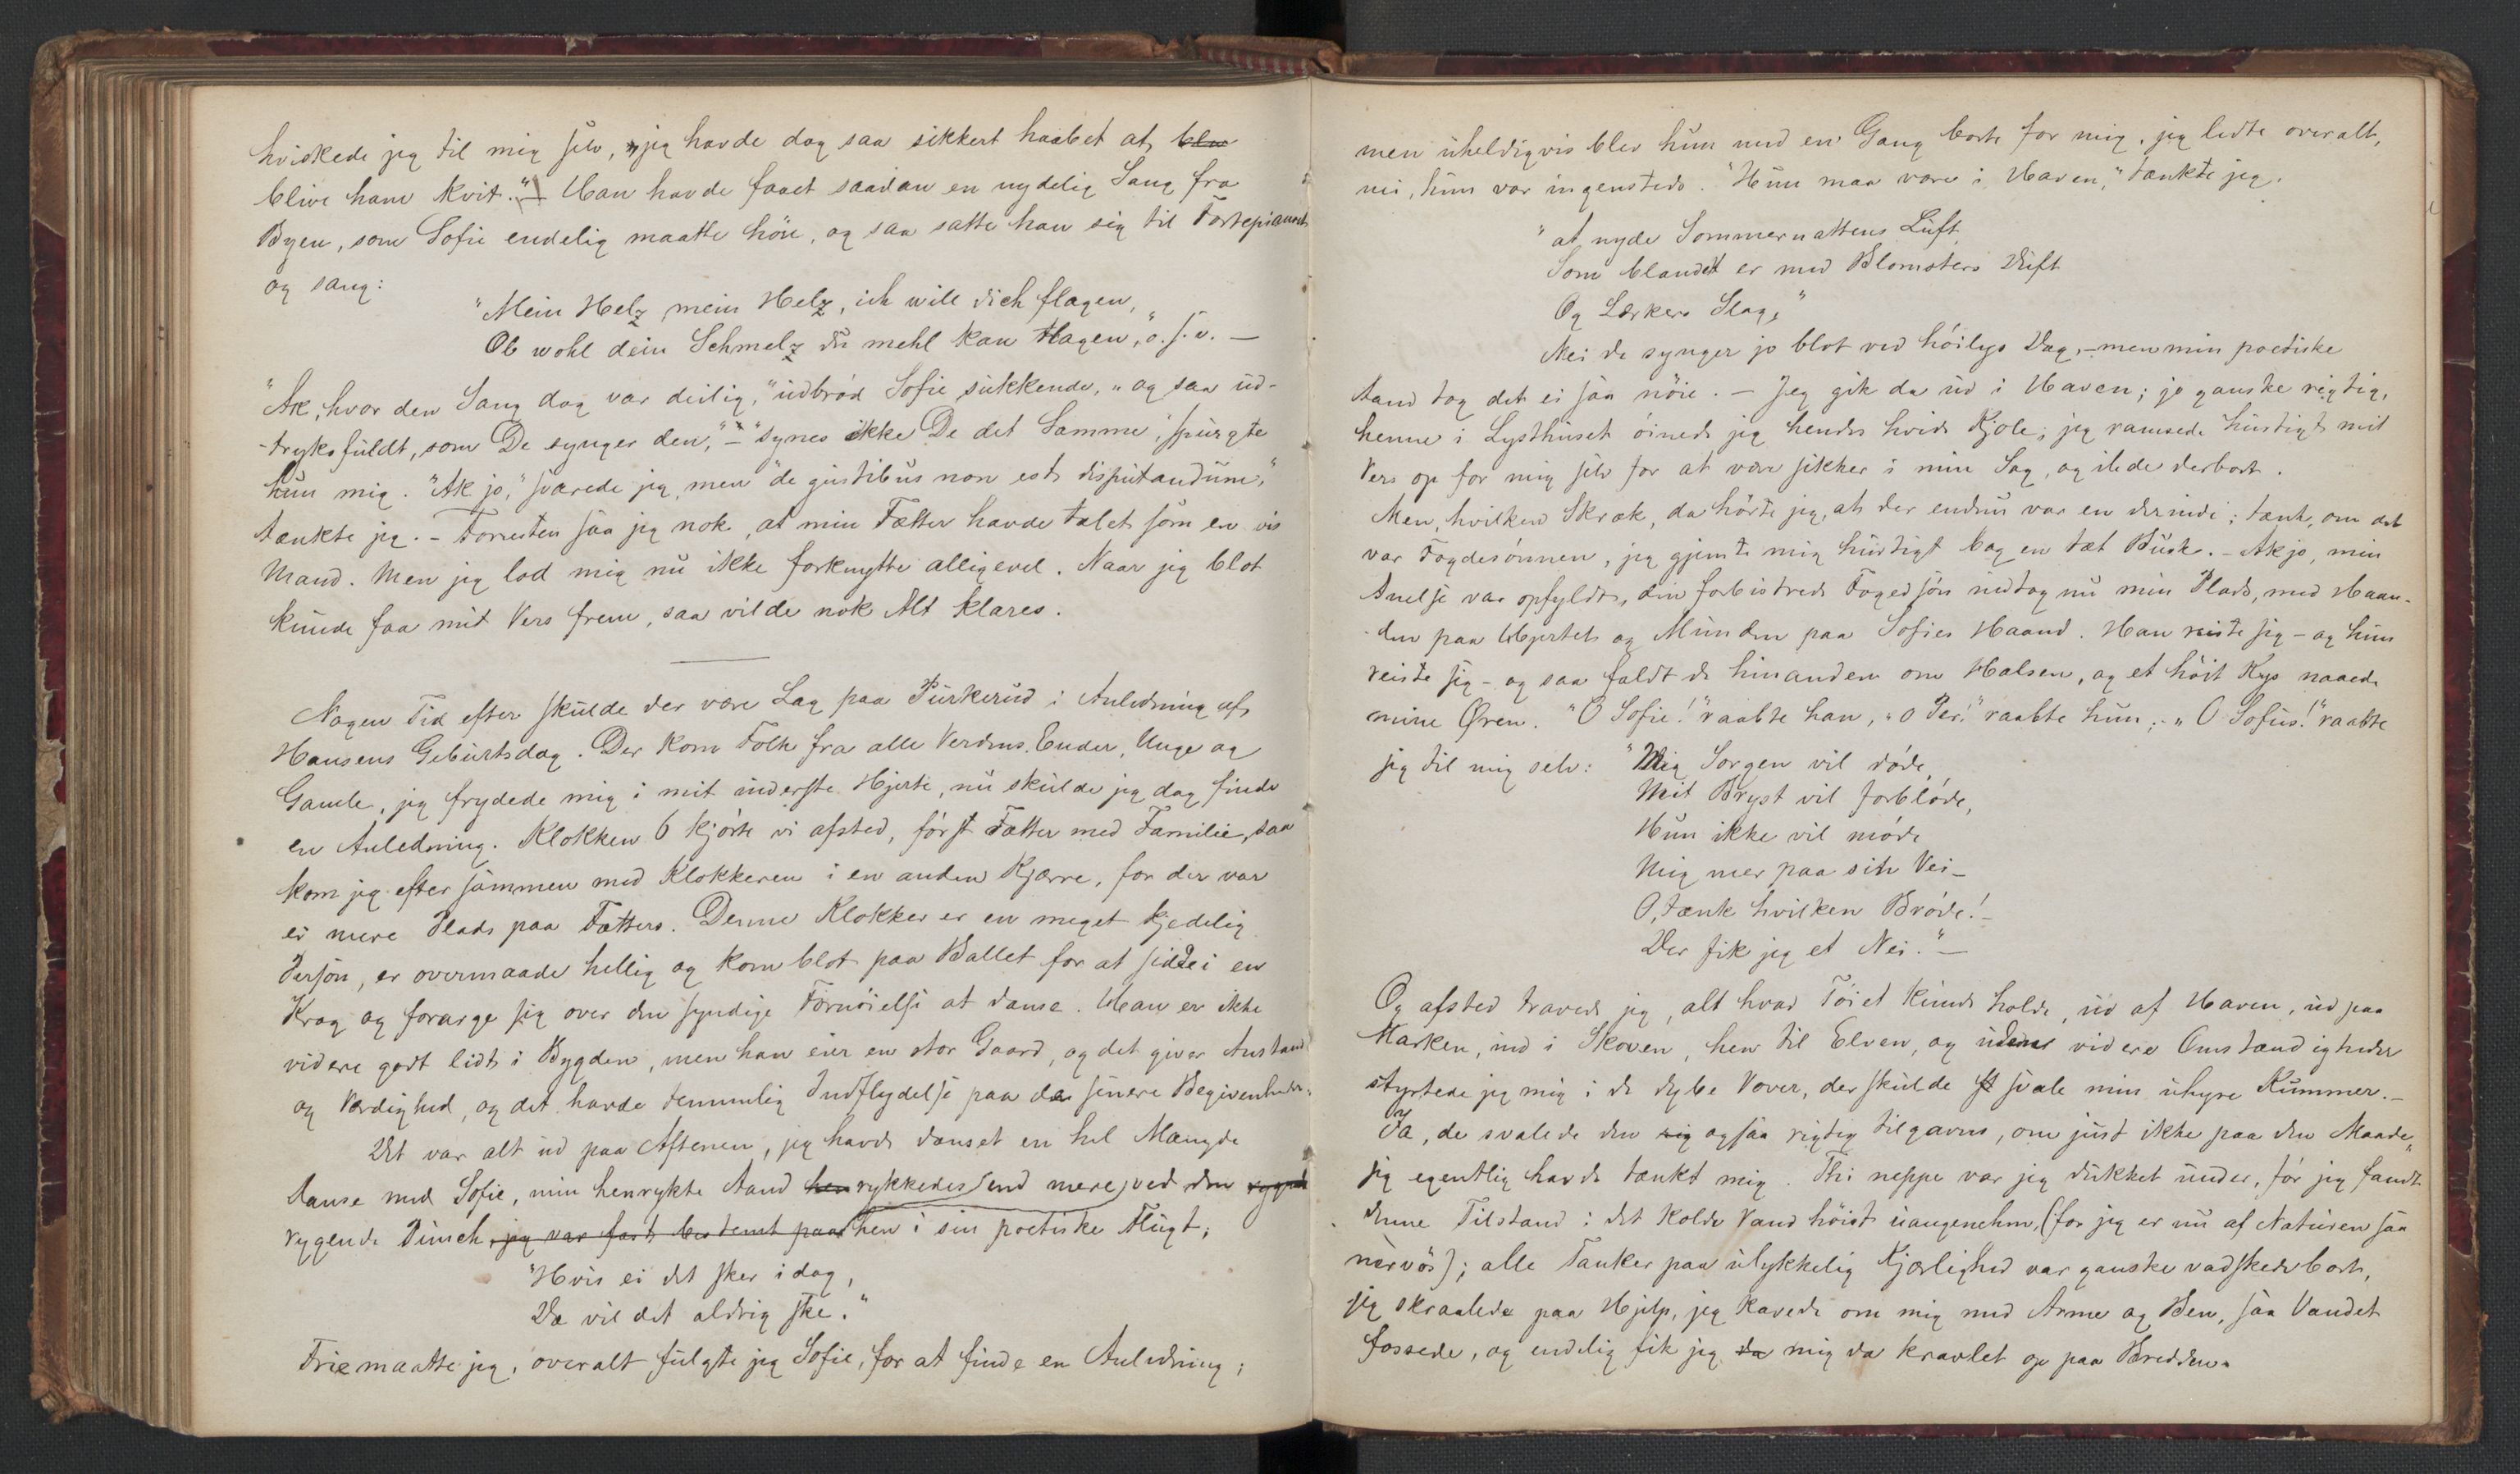 hviskede jeg til mig selv, „jeg havde dog saa sikkert haabet at blev
blive ham kvit.“ – Han havde faaet saadan en nydelig Sang fra
Byen, som Sofie endelig maatte höre, og saa satte han sig til Fortepianoet
og sang:
"Mein Helz, mein Helz, ich will dich flagen,
Ob wohl dein Schmelz du mehl kan tlagen," o. s. v. —
"Ak, hvor den Sang dog var deilig," udbröd Sofie sukkende, „og saa ud-
-tryksfuldt, som De synger den," – "synes ikke De det Samme", spurgte
hun mig. "Ak jo," svarede jeg, men "de gustibus non est disputandum,"
tænkte jeg. – Forresten saa jeg nok, at min Fætter havde talet som en vis
Mand. Men jeg lod mig nu ikke forknytte alligevel. Naar jeg blot
kunde faa mit Vers frem, saa vilde nok Alt klares.
Nogen Tid efter skulde der være Lag paa Purkerud i Anledning af
Hansens Geburtsdag. Der kom Folk fra alle Verdens Ender, Unge og
Gamle, jeg frydede mig i mit inderste Hjerte, nu skulde jeg dog finde
en Anledning. Klokken 6 kjörte vi afsted, först Fætter med Familie, saa
kom jeg efter sammen med Klokkeren i en anden Kjærre, for der var
ei mere Plads paa Fætters. Denne Klokker er en meget kjedelig
Person, er overmaade hellig og kom blot paa Ballet for at sidde i en
Krog og forarge sig over den syndige Fornöielse at danse. Han er ikke
videre godt lidt i Bygden, men han eier en stor Gaard, og det giver Anstand
og Værdighed, og det havde temmelig Indflydelse paa de senere Begivenheder.
Det var alt ud paa Aftenen, jeg havde danset en hel Mængde
Danse med Sofie, min henrykte Aand hen rykkedes (end mere) ved den rygende
rygende Punch, jeg var fast bestemt paa hen i sin poetiske Flugt;
"Hvis ei det sker idag,
Da vil det aldrig ske."
Frie maatte jeg, overalt fulgte jeg Sofie, for at finde en Anledning;
men uheldigvis blev hun med en Gang borte for mig, jeg ledte overalt,
nei, hun var ingensteds. "Hun maa være i Haven," tænkte jeg.
"at nyde Sommernattens Luft
Som blandet er med Blomsters Duft
Og Lærkers Slag,"
Nei de synger jo blot ved höilys Dag, – men min poetiske
Aand tog det ei saa nöie. – Jeg gik da ud i Haven; jo ganske rigtig,
henne i Lysthuset öinede jeg hendes hvide Kjole; jeg ramsede hurtigt mit
Vers op for mig selv for at være sikker i min Sag, og ilede derbort.
Men, hvilken Skræk, da hörte jeg, at der endnu var en derinde; tænk, om det
var Fogdesönnen, jeg gjemte mig hurtigt bag en tæt Busk. – Ak jo, min
Anelse var opfyldt, den forbistrede Fogedsön indtog nu min Plads, med Haan-
-den paa Hjertet og Munden paa Sofies Haand. Han reiste sig – og hun
reiste sig – og saa faldt de hinanden om Halsen, og et höit Kys naaede
mine Øren. "O Sofie!" raabte han, „o Per!" raabte hun; – „O Sofus!" raabte
jeg til mig selv: "Mig Sorgen vil döde,
Mit Bryst vil forblöde,
Hun ikke vil möde
Mig mer paa sin Vei –
O, tænk hvilken Bröde! –
Der fik jeg et Nei." –
Og afsted travede jeg, alt hvad Töiet kunde holde, ud af Haven, ud paa
Marken, ind i Skoven, hen til Elven, og uden videre Omstændigheder
styrtede jeg mig i de dybe Vover, der skulde svale min uhyre Kummer. –
Ja, de svalede den sig ogsaa rigtig tilgavns, om just ikke paa den Maade,
jeg egentlig havde tænkt mig. Thi neppe var jeg dukket under, för jeg fandt
denne Tilstand i det kolde Vand höist uangenehm, (for jeg er nu af Naturen saa
nervös); alle Tanker paa ulykkelig Kjærlighed var ganske vadskede bort,
jeg skraalede paa Hjelp, jeg kavede om mig med Arme og Ben, saa Vandet
fossede, og endelig fik jeg da mig da kravlet op paa Bredden.